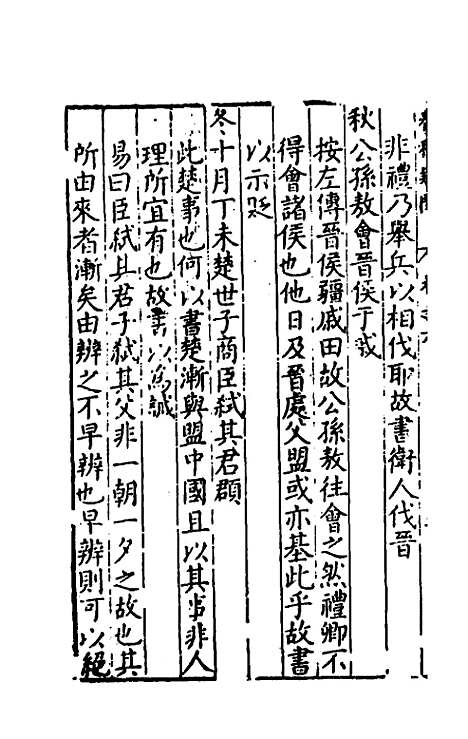 非禮乃舉兵以相伐耶故書衛人伐晉
秋公孫敖會晉侯于戚
按左傳晉侯疆戚田故公孫敖往會之然禮卿不
得會諸侯也他日及晉處父盟或亦基此乎故書
以示貶
冬十月丁未楚世子商臣弒其君頵
此楚事也何以書楚漸與盟中國且以其事非人
理所宜有也故書以為誡
易曰臣弒其君子弒其父非一朝一夕之故也其
所由來者漸矣由辨之不早辨也早辨則可以絕